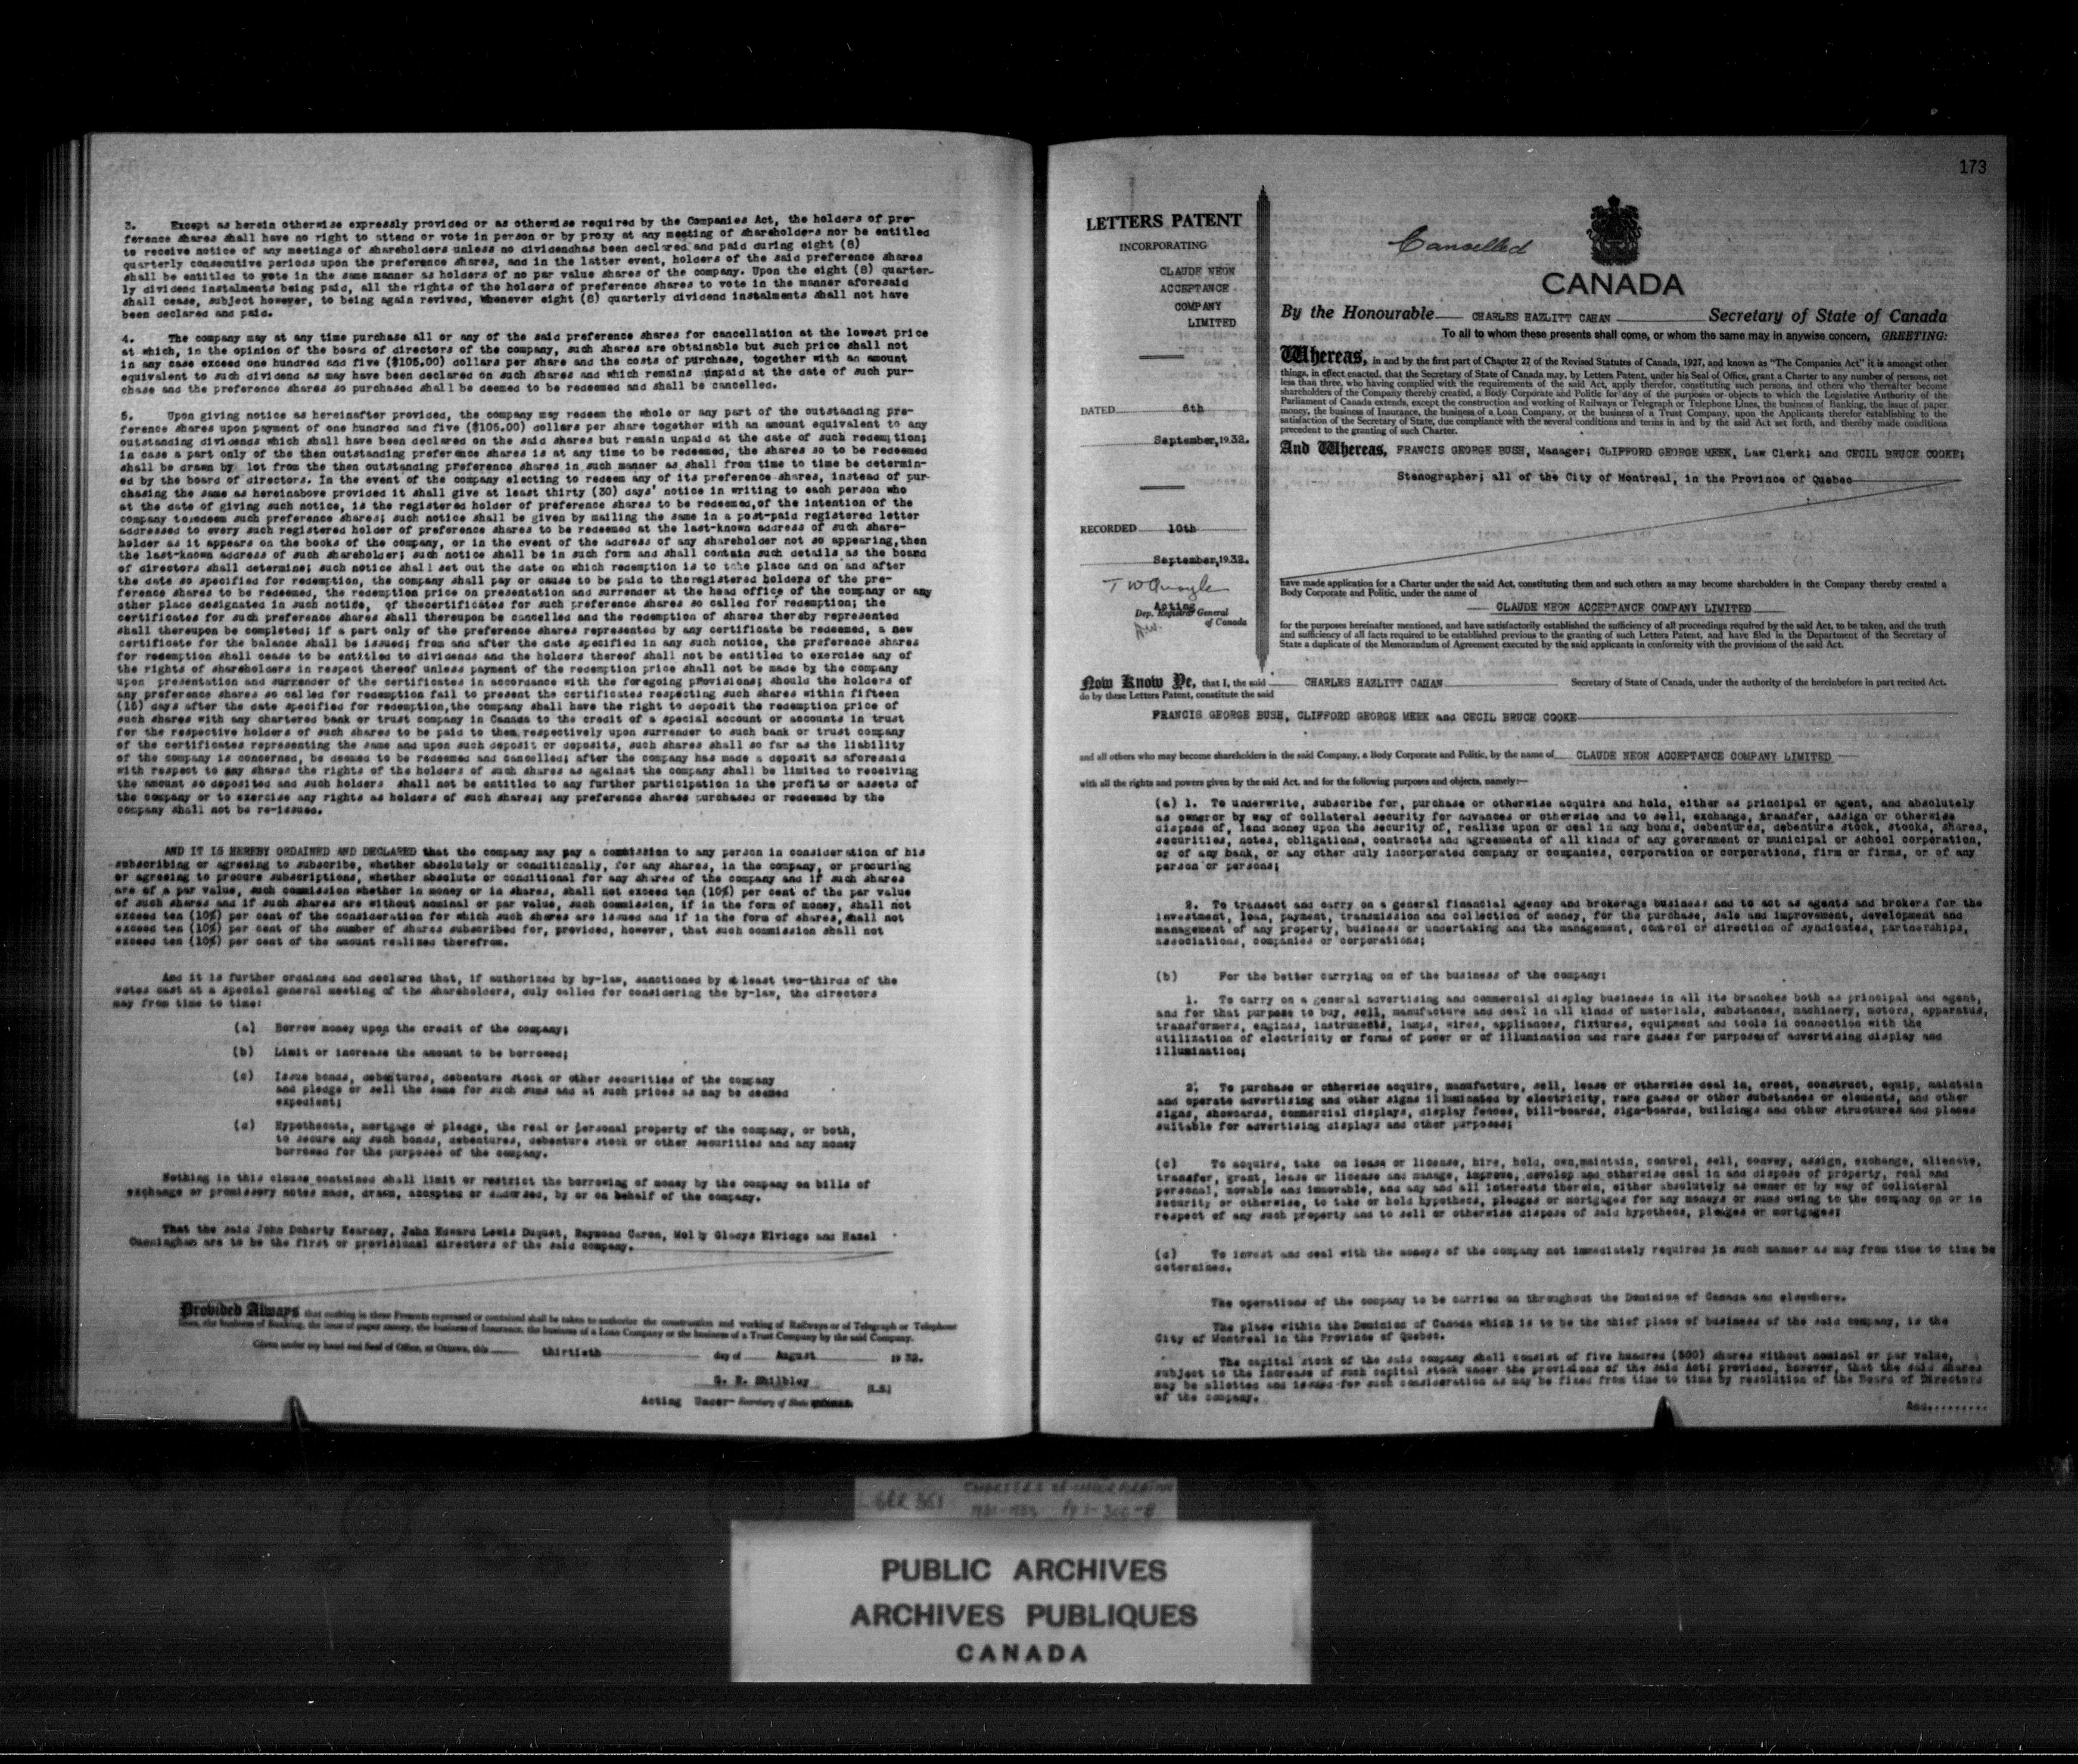 3. Except as herein otherwise expressly provided or as otherwise required by the Companies Act, the holders of pre-
ference shares shall have no right to attend or vote in person or by proxy at any meeting of shareholders nor be entitled
to receive notice of any meetings of shareholders unless no dividendhas been declared and paid during eight (8)
quarterly consecutive periods upon the preference shares, and in the latter event, holders of the said preference shares
shall be entitled to vote in the same manner as holders of no par value shares of the company. Upon the eight (8) quarter-
ly dividend instalments being paid, all the rights of the holders of preference shares to vote in the manner aforesaid
shall cease, subject however, to being again revived, whenever eight (8) quarterly dividend instalments shall not have
been declared and paid.
4. The company may at any time purchase all or any of the said preference shares for cancellation at the lowest price
at which, in the opinion of the board of directors of the company, such shares are obtainable but such price shall not
in any case exceed one hundred and five ($105.00) dollars per share and the costs of purchase, together with an amount
equivalent to such dividend as may have been declared on such shares and which remains unpaid at the date of such pur-
chase and the preference shares so purchased shall be deemed to be redeemed and shall be cancelled.
5. Upon giving notice as hereinafter provided, the company may redeem the whole or any part of the outstanding pre-
ference shares upon payment of one hundred and five ($105.00) dollars per share together with an amount equivalent to any
outstanding dividends which shall have been declared on the said shares but remain unpaid at the date of such redemption;
in case a part only of the then outstanding preference shares is at any time to be redeemed, the shares so to be redeemed
shall be drawn by lot from the then outstanding preference shares in such manner as shall from time to time be determin-
ed by the board of directors. In the event of the company electing to redeem any of its preference shares, instead of pur-
chasing the same as hereinabove provided it shall give at least thirty (30) days' notice in writing to each person who
at the date of giving such notice, is the registered holder of preference shares to be redeemed,of the intention of the
company toredeem such preference shares; such notice shall be given by mailing the same in a post-paid registered letter
addressed to every such registered holder of preference shares to be redeemed at the last-known address of such share-
holder as it appears on the books of the company, or in the event of the address of any shareholder not so appearing,then
the last-known address of such shareholder; such notice shall be in such form and shall contain such details as the board
of directors shall determine; such notice shall set out the date on which redemption is to take place and on and after
the date so specified for redemption, the company shall pay or cause to be paid to theregistered holders of the pre-
ference shares to be redeemed, the redemption price on presentation and surrender at the head office of the company or any
other place designated in such notice, of thecertificates for such preference shares so called for redemption; the
certificates for such preference shares shall thereupon be cancelled and the redemption of shares thereby represented
shall thereupon be completed; if a part only of the preference shares represented by any certificate be redeemed, a new
certificate for the balance shall be issued; from and after the date specified in any such notice, the preference shares
for redemption shall cease to be entitled to dividends and the holders thereof shall not be entitled to exercise any of
the rights of shareholders in respect thereof unless payment of the redemption price shall not be made by the company
upon presentation and surrender of the certificates in accordance with the foregoing provisions; should the holders of
any preference shares so called for redemption fail to present the certificates respecting such shares within fifteen
(15) days after the date specified for redemption,the company shall have the right to deposit the redemption price of
such shares with any chartered bank or trust company in Canada to the credit of a special account or accounts in trust
for the respective holders of such shares to be paid to them respectively upon surrender to such bank or trust company
of the certificates representing the same and upon such deposit or deposits, such shares shall so far as the liability
of the company is concerned, be deemed to be redeemed and cancelled; after the company has made a deposit as aforesaid
with respect to any shares the rights of the holders of such shares as against the company shall be limited to receiving
the amount so deposited and such holders shall not be entitled to any further participation in the profits or assets of
the company or to exercise any rights as holders of such shares; any preference shares purchased or redeemed by the
company shall not be re-issued.
AND IT IS HEREBY ORDAINED AND DECLARED that the company may pay a commission to any person in consideration of his
subscribing or agreeing to subscribe, whether absolutely or conditionally, for any shares, in the company, or procuring
or agreeing to procure subscriptions, whether absolute or conditional for any shares of the company and if such shares
are of a par value, such commission whether in money or in shares, shall not exceed ten (10%) per cent of the par value
of such shares and if such shares are without nominal or par value, such commission, if in the form of money, shall not
exceed ten (10%) per cent of the consideration for which such shares are issued and if in the form of shares,shall not
exceed ten (10%) per cent of the number of shares subscribed for, provided, however, that such commission shall not
exceed ten (10%) per cent of the amount realized therefrom.
And it is further ordained and declared that, if authorized by by-law, sanctioned by at least two-thirds of the
votes cast at a special general meeting of the shareholders, duly called for considering the by-law, the directors
may from time to time:
(a) Borrow money upon the credit of the company;
(b) Limit or increase the amount to be borrowed;
(c) Issue bonds, debentures, debenture stock or other securities of the company
and pledge or sell the same for such sums and at such prices as may be deemed
expedient;
(d) Hypothecate, mortgage or pledge, the real or personal property of the company, or both,
to secure any such bonds, debentures, debenture stock or other securities and any money
borrowed for the purposes of the company.
Nothing in this clause contained shall limit or restrict the borrowing of money by the company on bills of
exchange or promissory notes made, drawn, accepted or endorsed, by or on behalf of the company.
That the said John Doherty Kearney, John Edward Lewis Duquet, Raymond Caron, Molly Gladys Elvidge and Hazel
Cunningham are to be the first or provisional directors of the said company.
Provided Always that nothing in these Presents expressed or contained shall be taken to authorize the construction and working of Railways or of Telegraph or Telephone
lines, the business of Banking, the issue of paper money, the business of Insurance, the business of a Loan Company or the business of a Trust Company by the said Company.
Given under my hand and Seal of Office, at Ottawa, this thirtieth day of August 1932.
G. R. Shibley
(L.S.)
Acting Under-Secretary of State
173
LETTERS PATENT
INCORPORATING
CLAUDE NEON
ACCEPTANCE
COMPANY
LIMITED
DATED 6th
September, 1932.
RECORDED 10th
September, 1932.
Acting
Dep. Registrar General
of Canada
Cancelled
CANADA
By the Honourable CHARLES HAZLITT CAHAN Secretary of State of Canada
To all to whom these presents shall come, or whom the same may in anywise concern, GREETING:
Whereas, in and by the first part of Chapter 27 of the Revised Statutes of Canada, 1927, and known as "The Companies Act" it is amongst other
things, in effect enacted, that the Secretary of State of Canada may, by Letters Patent, under his Seal of Office, grant a Charter to any number of persons, not
less than three, who having complied with the requirements of the said Act, apply therefor, constituting such persons, and others who thereafter become
shareholders of the Company thereby created, a Body Corporate and Politic for any of the purposes or objects to which the Legislative Authority of the
Parliament of Canada extends, except the construction and working of Railways or Telegraph or Telephone Lines, the business of Banking, the issue of paper
money, the business of Insurance, the business of a Loan Company, or the business of a Trust Company, upon the Applicants therefor establishing to the
satisfaction of the Secretary of State, due compliance with the several conditions and terms in and by the said Act set forth, and thereby made conditions
precedent to the granting of such Charter.
And Whereas, FRANCIS GEORGE BUSH, Manager; CLIFFORD GEORGE MEEK, Law Clerk; and CECIL BRUCE COOKE;
Stenographer; all of the City of Montreal, in the Province of Quebec
have made application for a Charter under the said Act, constituting them and such others as may become shareholders in the Company thereby created a
Body Corporate and Politic, under the name of
CLAUDE NEON ACCEPTANCE COMPANY LIMITED
for the purposes hereinafter mentioned, and have satisfactorily established the sufficiency of all proceedings required by the said Act, to be taken, and the truth
and sufficiency of all facts required to be established previous to the granting of such Letters Patent, and have filed in the Department of the Secretary of
State a duplicate of the Memorandum of Agreement executed by the said applicants in conformity with the provisions of the said Act.
Now Know Ye, that I, the said CHARLES HAZLITT CAHAN Secretary of State of Canada, under the authority of the hereinbefore in part recited Act.
do by these Letters Patent, constitute the said
FRANCIS GEORGE BUSH, CLIFFORD GEORGE MEEK and CECIL BRUCE COOKE
and all others who may become shareholders in the said Company, a Body Corporate and Politic, by the name of CLAUDE NEON ACCEPTANCE COMPANY LIMITED
with all the rights and powers given by the said Act, and for the following purposes and objects, namely:—
(a) 1. To underwrite, subscribe for, purchase or otherwise acquire and hold, either as principal or agent, and absolutely
as owneror by way of collateral security for advances or otherwise and to sell, exchange, transfer, assign or otherwise
dispose of, lend money upon the security of, realize upon or deal in any bonds, debentures, debenture stock, stocks, shares,
securities, notes, obligations, contracts and agreements of all kinds of any government or municipal or school corporation,
or of any bank, or any other duly incorporated company or companies, corporation or corporations, firm or firms, or of any
person or persons;
2. To transact and carry on a general financial agency and brokerage business and to act as agents and brokers for the
investment, loan, payment, transmission and collection of money, for the purchase, sale and improvement, development and
management of any property, business or undertaking and the management, control or direction of syndicates, partnerships,
associations, companies or corporations;
(b) For the better carrying on of the business of the company:
1. To carry on a general advertising and commercial display business in all its branches both as principal and agent,
and for that purpose to buy, sell, manufacture and deal in all kinds of materials, substances, machinery, motors, apparatus,
transformers, engines, instruments, lamps, wires, appliances, fixtures, equipment and tools in connection with the
utilization of electricity or forms of power or of illumination and rare gases for purposes of advertising display and
illumination;
2. To purchase or otherwise acquire, manufacture, sell, lease or otherwise deal in, erect, construct, equip, maintain
and operate advertising and other signs illuminated by electricity, rare gases or other substances or elements, and other
signs, showcards, commercial displays, display fences, bill-boards, sign-boards, buildings and other structures and places
suitable for advertising displays and other purposes;
(c) To acquire, take on lease or license, hire, hold, own,maintain, control, sell, convey, assign, exchange, alienate,
transfer, grant, lease or license and manage, improve, develop and otherwise deal in and dispose of property, real and
personal, movable and immovable, and any and all interests therein, either absolutely as owner or by way of collateral
security or otherwise, to take or hold hypothecs, pledges or mortgages for any moneys or sums owing to the company on or in
respect of any such property and to sell or otherwise dispose of said hypothecs, pledges or mortgages;
(d) To invest and deal with the moneys of the company not immediately required in such manner as may from time to time be
determined.
The operations of the company to be carried on throughout the Dominion of Canada and elsewhere.
The place within the Dominion of Canada which is to be the chief place of business of the said company, is the
City of Montreal in the Province of Quebec.
The capital stock of the said company shall consist of five hundred (500) shares without nominal or par value,
subject to the increase of such capital stock under the provisions of the said Act; provided, however, that the said shares
may be allotted and issued for such consideration as may be fixed from time to time by resolution of the Board of Directors
of the company.
And.........
LIBER 351 CHARTERS of INCORPORATION
1931-1933 Pp 1-300-B
PUBLIC ARCHIVES
ARCHIVES PUBLIQUES
CANADA